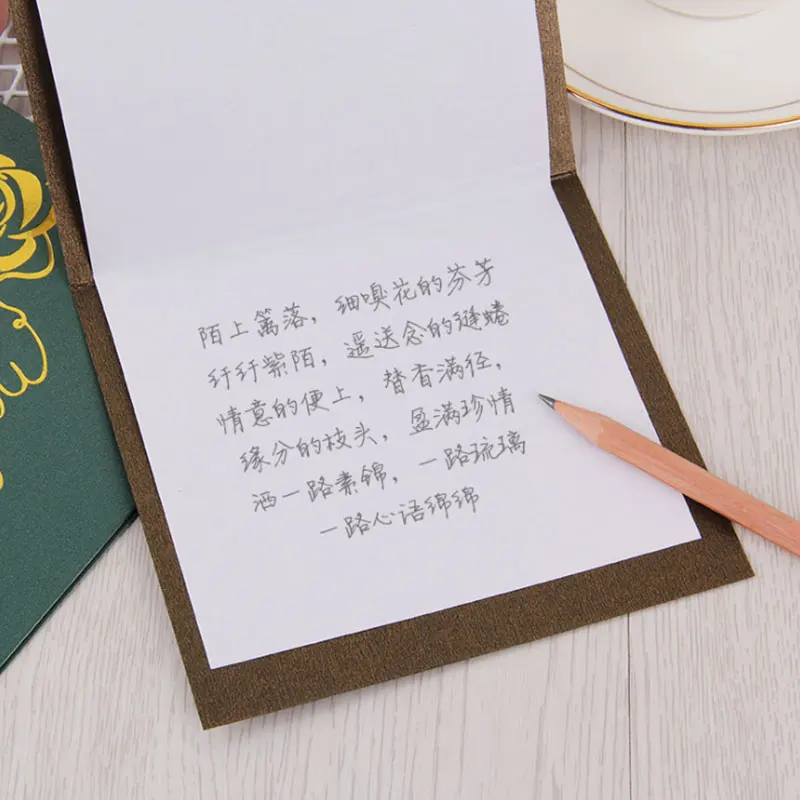 陌上篱落，细嗅花的芬芳
纤纤紫陌，遥送念的缱绻
情意的便上，替香满径，
缘分的枝头，盈满珍情
洒一路素锦，一路琉璃
一路心语绵绵